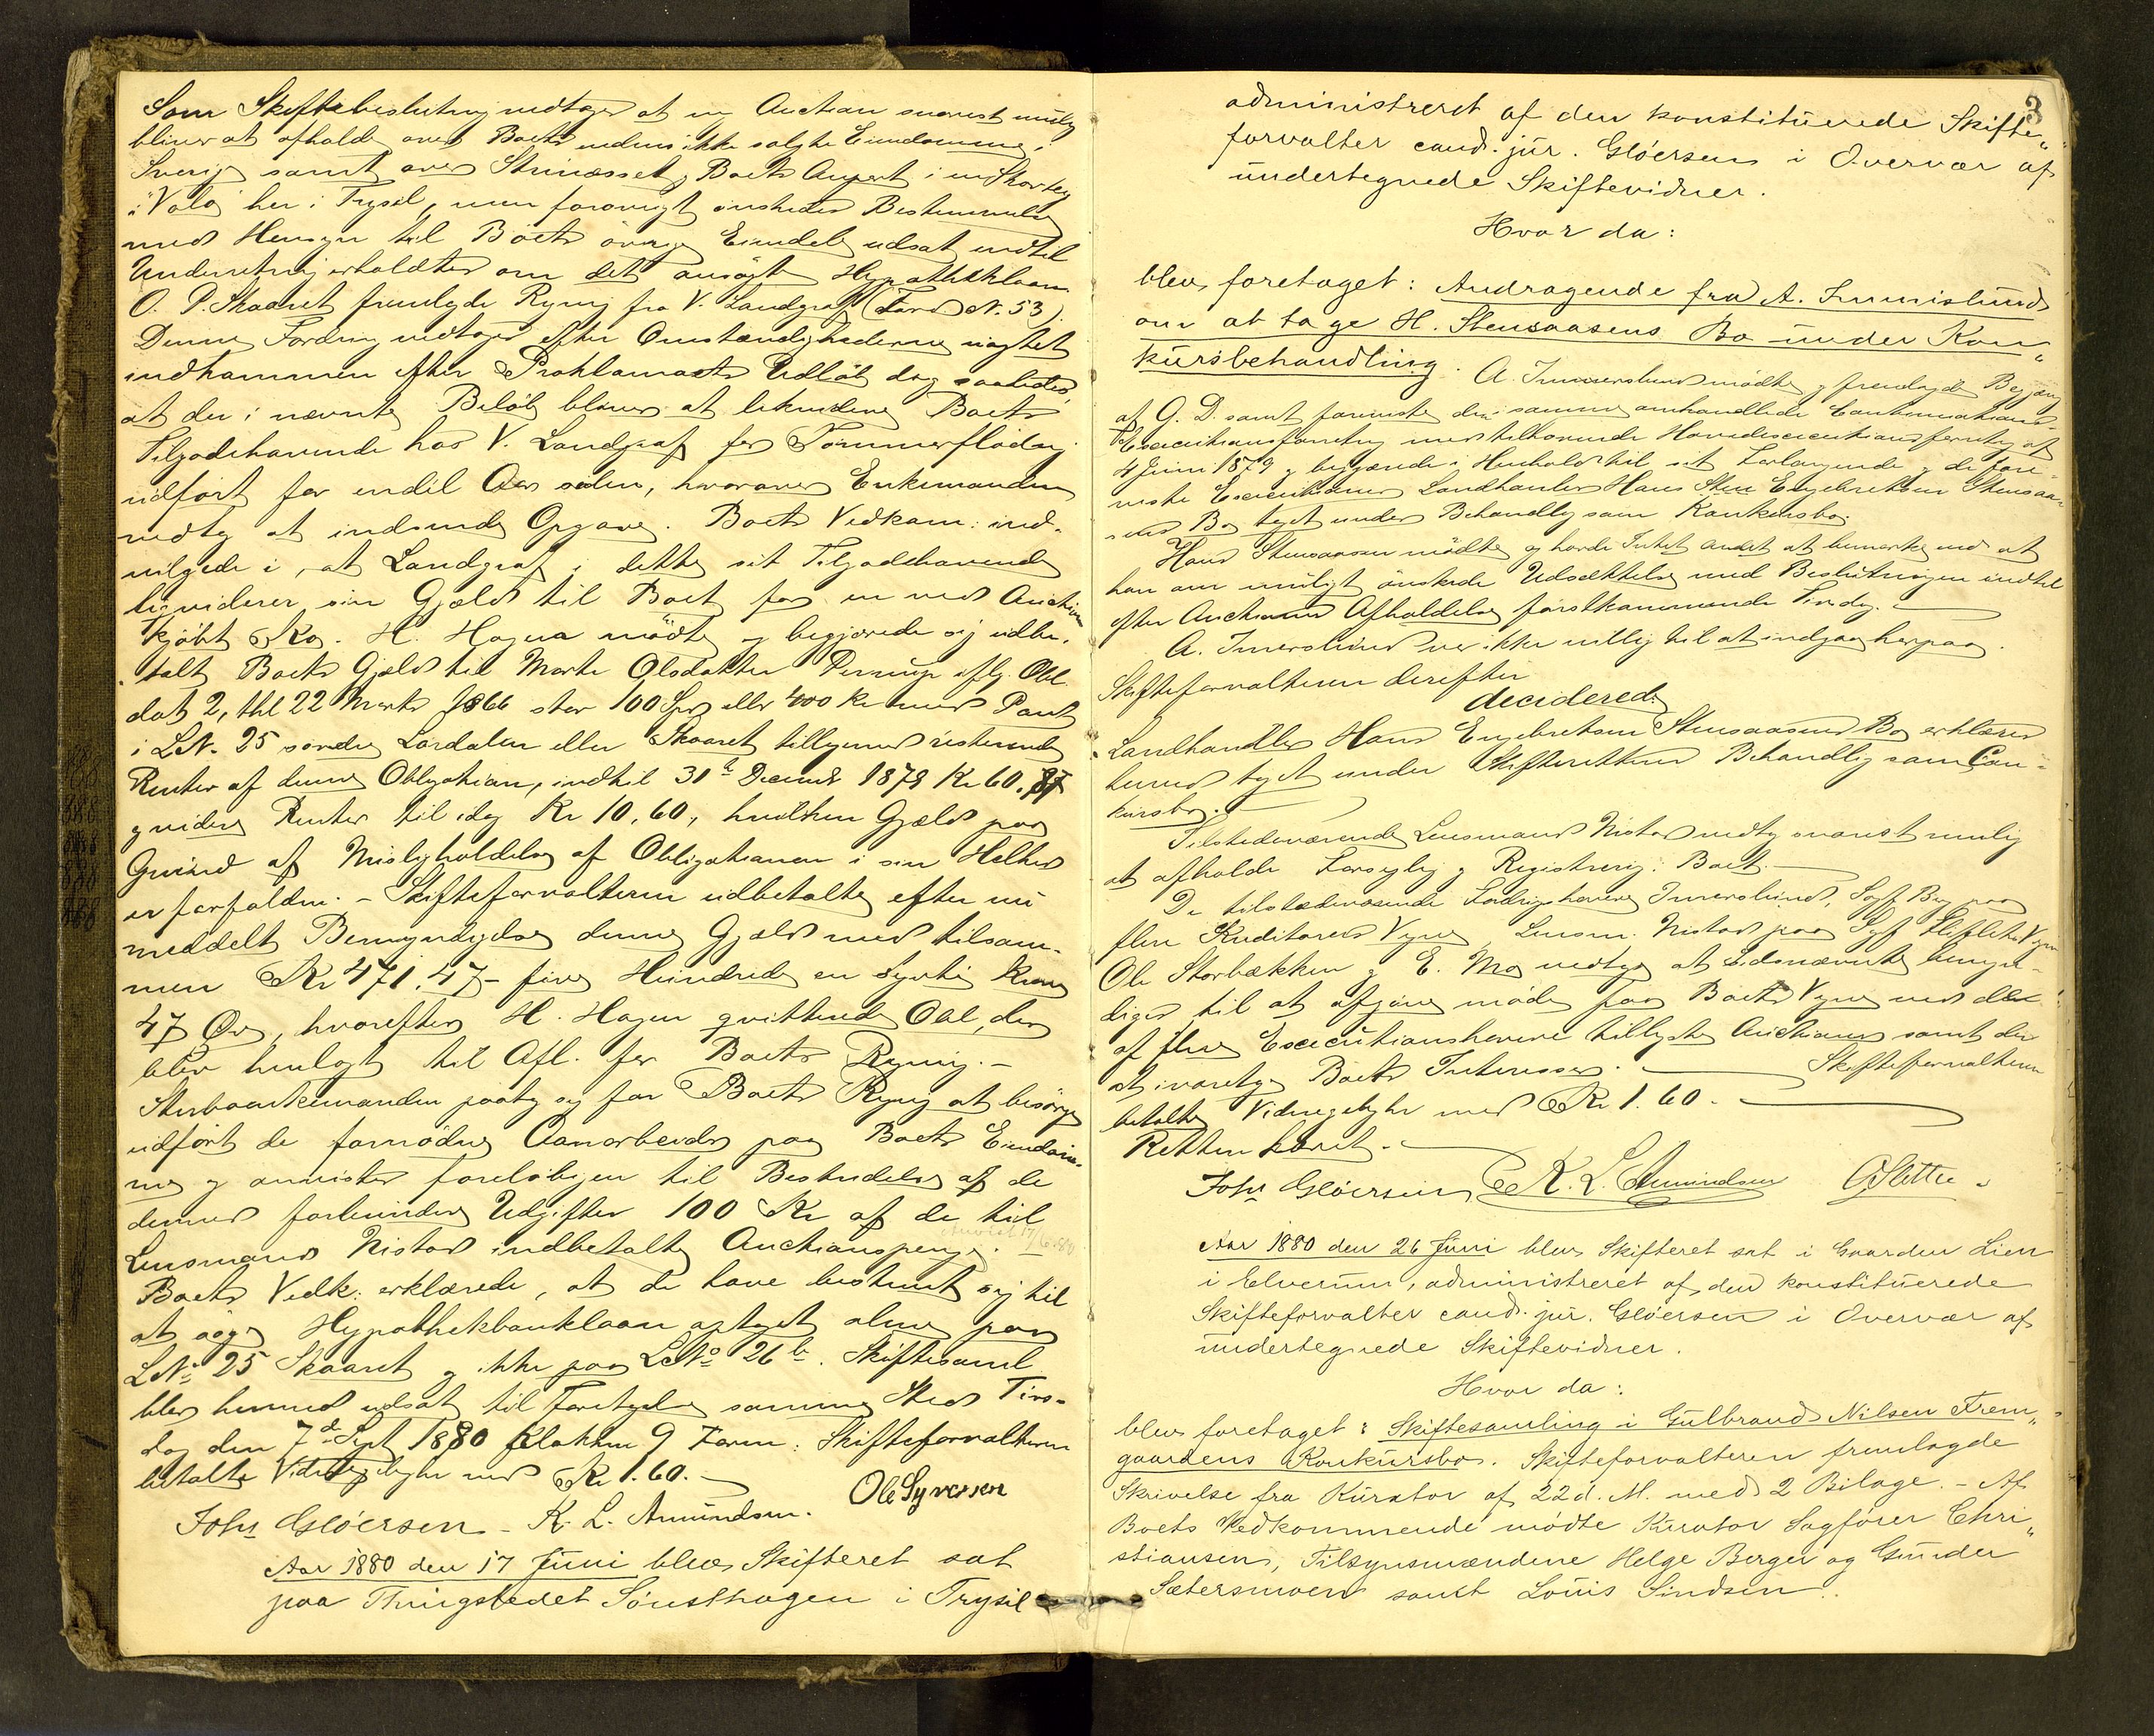 Som Skiftebeslutning vedtoges at ny Auction snarest mulig
bliver at afholde over Boets endnu ikke solgte Eiendomme i
Sverige samt over Strinæsset, Boets Anpart i en Skovteig
i Volø her i Trysil, men forøvrigt ønskedes Bestemmelse
med Hensyn til Boets øvrige Eiendele udsat indtil
Underretning erholdtes om det ansøgte Hypothekklaan
O. P. Skaaret fremlagde Regning fra V. Landgraff (Ford N. 53).
Denne Fordring vedtoges efter Omstændighederne uagtet
indkommen efter Proklamaets Udløb dog saaledes,
at der i nævnte Beløb bliver at likvidere Boets
Tilgodehavende hos V. Landgraf for Tømmerflødning
udført for endel Aar siden, hvorover Enkemanden
vedtog at indsende Opgave. Boets Vedkom: ind-
vilgede i, at Landgraf i dette sit Tilgodehavende
ligviderer sin Gjæld til Boet for en ved Auction
kjøbt Ko. H. Hagen mødte og begjærede sig udbe-
talt Boets Gjæld til Marte Olsdatter iflg. Obl.
dat 2, thl 22 Marts 1866 stor 100 Spd eller 400 Kr med Pant
i LN. 25 søndre Lørdalen eller Skaaret tilligemed resterende
Renter af denne Obligation, indtil 31te Decemb 1879 Kr 60.87
og videre Renter til idag Kr 10,60, hvilken Gjæld paa
Grund af Misligholdelse af Obligationen i sin Helhed
er forfalden. - Skifteforvalteren udbetalte efter nu
meddelt Bemyndigelse denne Gjæld med tilsam-
men Kr 471,47 - fire Hundrede en Sytti Kroner
47 Øre, hvorefter H. Hagen qvitterede Obl, der
blev henlagt til Afl. for Boets Regning. -
Sterboenkemanden paatog sig for Boets Regning at besørge
udført de fornødne Aanarbeider paa Boets Eiendom-
me og anvistes foreløbigen til Bestridelse af de
dermed forbundne Udgifter 100 Kr af de til
Lensmand Nistad indbetalte Auctionspenge. Anvist 17/6 80
Boets Vedk: erklærede, at de have bestemt sig til
at søge Hypothekbanklaan optaget alene paa
LN: 25 Skaaret og ikke paa LNo 26 b. Skiftesaml.
blev hermed udsat til Foretagelse samme Sted Tirs-
dag den 7de Sept 1880 Klokken 9 Form: Skifteforvalteren
betalte Vidnegebyhr med Kr 1.60.
Joh Gløersen - K. L. Amundsen. Ole Syversen
Aar 1880 den 17 Juni blev Skifteret sat
paa Thingstedet Sønsthagen i Trysil
3
administreret af den konstituerede Skifte„
forvalter cand. jur. Gløersen i Overvær af
undertegnede Skiftevidner.
Hvor da:
blev foretaget: Andragende fra A. Immislund
om at tage H. Stensaasens Bo under Kon„
kursbehandling. A. Immerslund mødte og fremlagde Begjæring
af G. D. samt foreviste den i samme omhandlede
Executionsforretning med tilhørende Hovedexecutionsforretning af
4 Juni 1879 og begjærede i Henhold til sit Forlangende og de fore-
viste Executioner Landhandler Hans Engebretsen Stensaa-
sens Bo taget under Behandling som Konkursbo.
Hans Stensaasen mødte og havde Intet andet at bemærke end at
han om muligt ønskede Udsættelse med Beslutningen indtil
efter Auctionens Afholdelse førstkommende Tirsdag.
A. Imerslund var ikke villig til at indgaa herpaa.
Skifteforvalteren derefter
deciderede
Landhandler Hans Engebretsen Stensaasens Bo erklæres
herved taget under Skifterettens Behandling som Con-
kursbo.
Tilstedeværende Lensmand Nistad vedtog snarest mulig
at afholde Forsegling og Registrering i Boet.
De tilstedeværende Fordringshavere Imerslund, Sagf. Berg paa
flere Kreditorers Vegne, Lensm. Nistad paa Vegne
Ole Storbækken og E. Mo vedtog at Sidsnævnte bemyn-
diges til at afgive møde paa Boets Vegne ved den
af flere Executionshavere tillyste Auction samt der
at ivaretage Boets Interesser. Skifteforvalteren
betalte Vidnegebyhr med Kr 1.60.
Retten hævet.
Joh Gløersen K. L. Amundsen
Aar 1880 den 26 Juni blev Skifteret sat i Gaarden Lien
i Elverum, administreret af den konstituerede
Skifteforvalter cand. jur. Gløersen i Overvær af
undertegnede Skiftevidner.
Hvor da:
blev foretaget: Skiftesamling i Gulbrand Nilsen Frem„
gaardens Konkursbo. Skifteforvalteren fremlagde
Skrivelse fra Kurator af 22 d. M. med 2 Bilage. - Af
Boets Vedkommende mødte Kurator Sagfører Chri„
stiansen, Tilsynsmændene Helge Berger og Gunder
Sætersmoen samt Louis Sindsen.